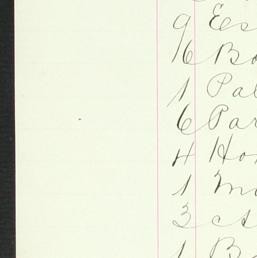 9 Es
16 Bo
1 Pal
6 Par
4 Ho
1 M
3
1 B